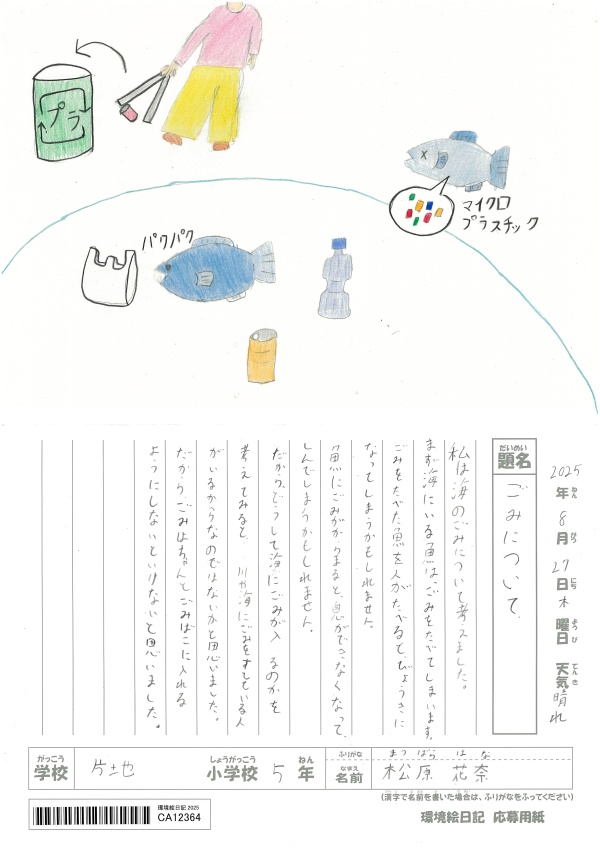 プラ
マイクロ
プラスチック
パクパク
2025年ねん8月がつ27日にち木曜日ようび 天気てんき晴れ
だいめい
題名
ごみについて
私は海のごみについて考えました。
まず海にいる魚は、ごみをたべてしまいます。
ごみをたべた魚を人がたべると、びょうきに
なってしまうかもしれません。
魚にごみがからまると、息ができなくなって、
しんでしまうかもしれません。
だから、どうして海にごみが入るのかを
考えてみると、川や海にごみをすてている人
がいるからなのではないかと思いました。
だから、ごみはちゃんとごみばこに入れる
ようにしないといけないと思いました。
がっこう
学校
片土也
しょうがっこう
小学校
5
ねん
年
ふりがな
まつばら はな
なまえ
名前
松原 花奈
(漢字で名前を書いた場合は、ふりがなをふってください)
環境絵日記 2025
CA12364
環境絵日記 応募用紙